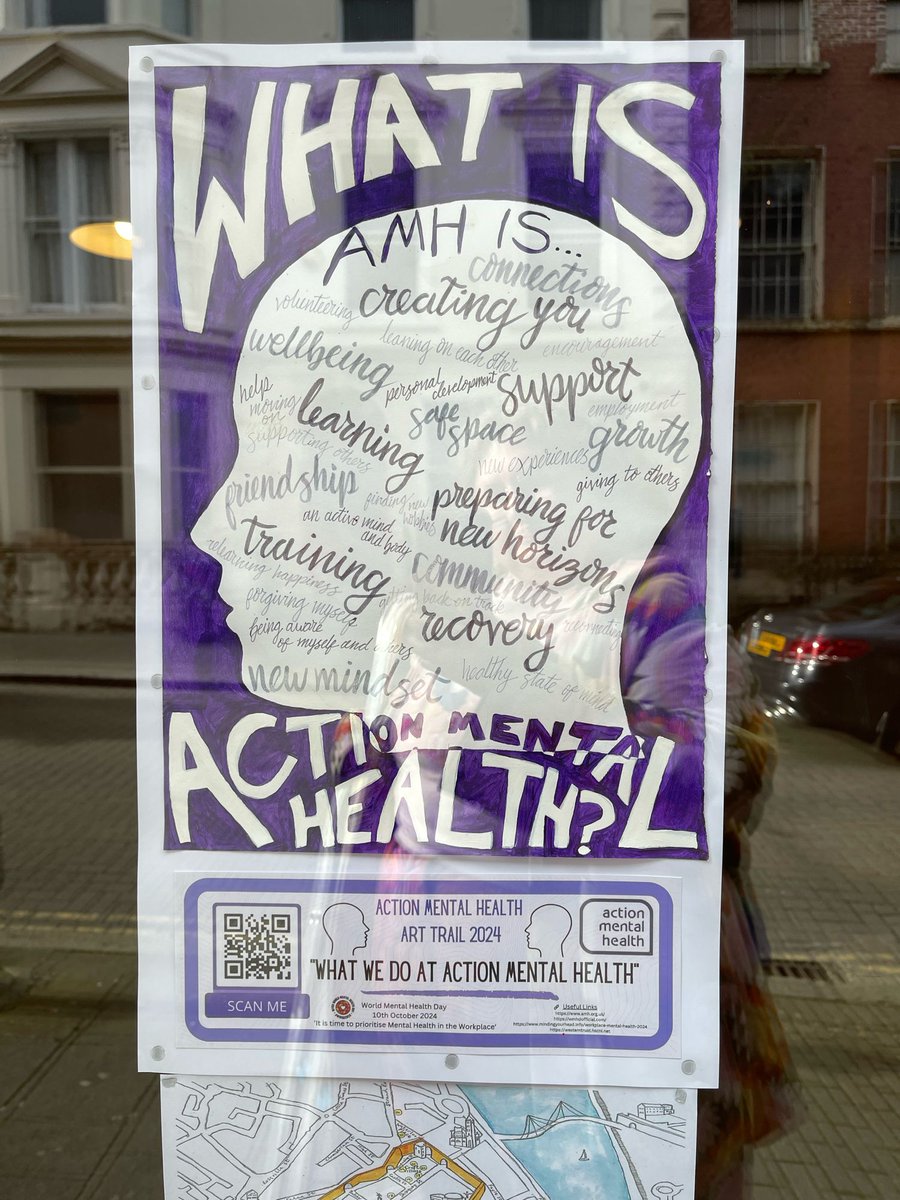 WHAT IS
AMH IS...
connections
volunteering
creating you
leaning on each other
encouragement
wellbeing
personal
development
support
help
moving
on
learning
safe
space
employment
supporting others
growth
new experiences
giving to others
friendship
finding new
hobbies
preparing for
new horizons
an active mind
and body
training
community
relearning happiness
getting back on track
forgiving myself
recovery
reconnecting
being aware
of myself and others
new mindset
healthy state of mind
ACTION MENTAL
HEALTH?
ACTION MENTAL HEALTH
ART TRAIL 2024
action
mental
health
"WHAT WE DO AT ACTION MENTAL HEALTH"
SCAN ME
World Mental Health Day
10th October 2024
'It is time to prioritise Mental Health in the Workplace'
Useful Links
https://www.amh.org.uk/
https://wmhdofficial.com/
https://www.mindingyourhead.info/workplace-mental-health-2024
https://westerntrust.hscni.net